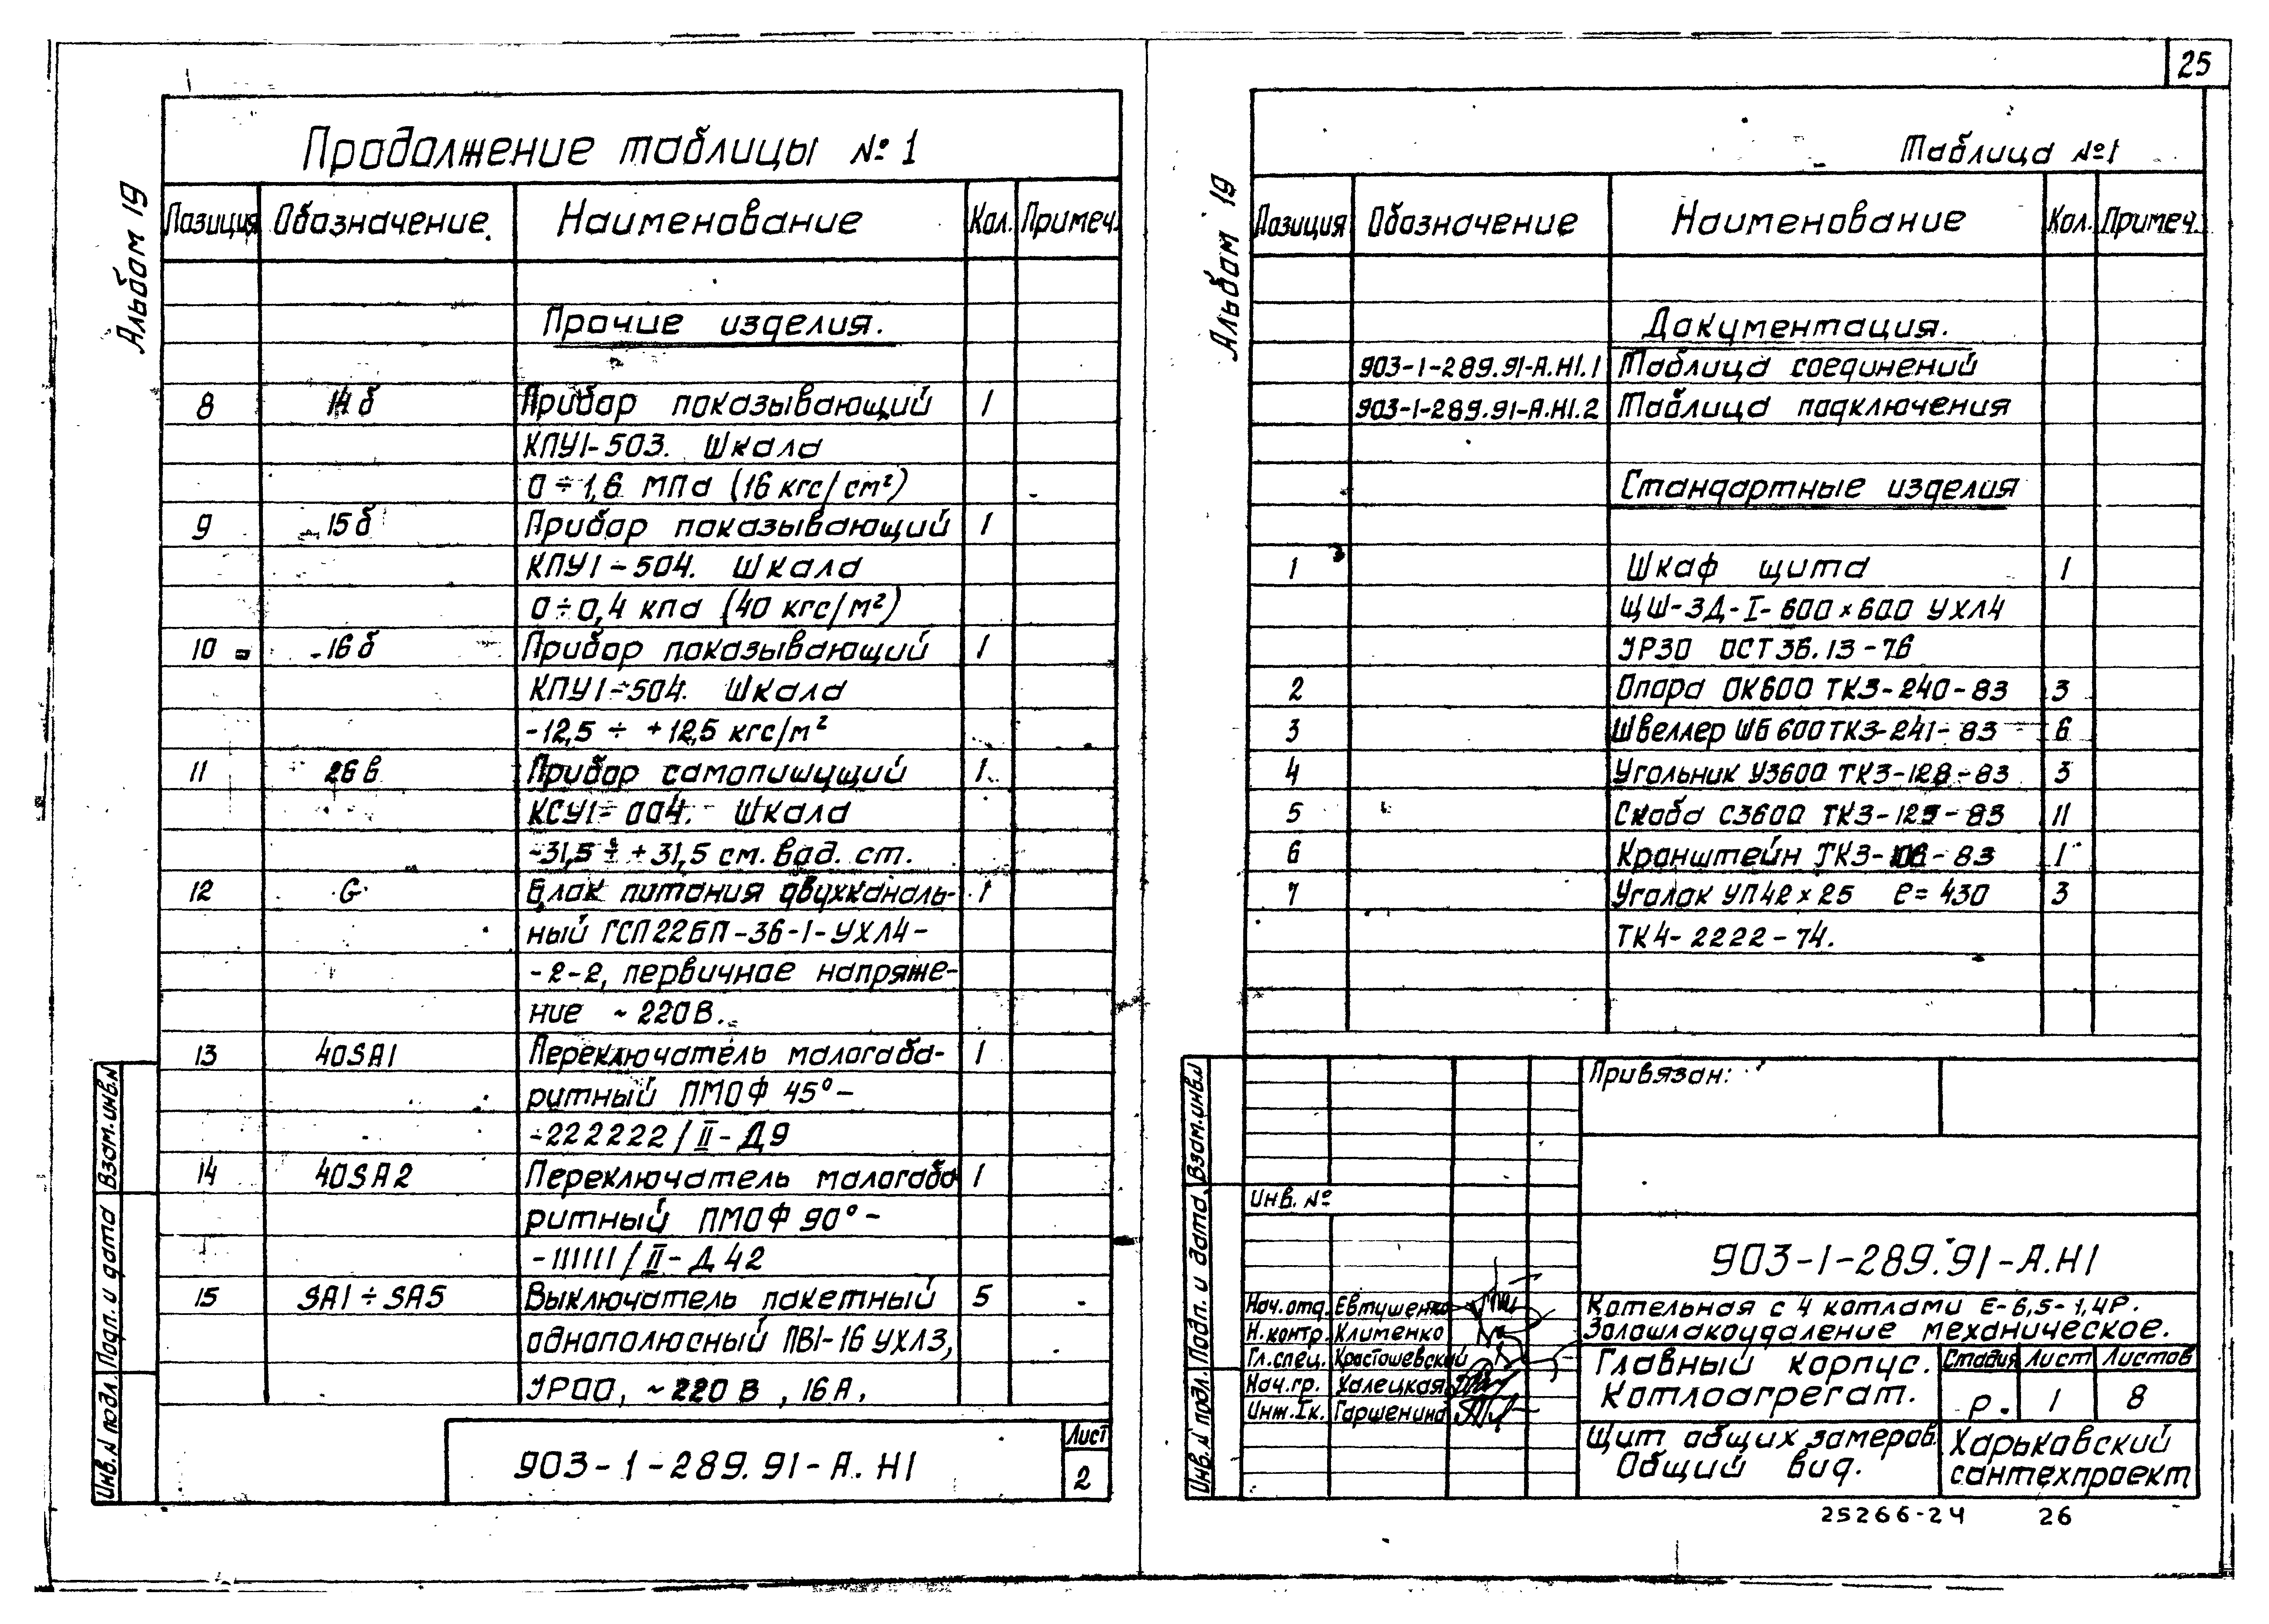 25
Альбом 19
Продолжение таблицы №1
Позиция Обозначение Наименование Кол. Примеч.
Прочие изделия.
8 14б Прибор показывающий 1
КПУ1-503. Шкала
0÷1,6 МПа (16 кгс/см²)
9 15б Прибор показывающий 1
КПУ1-504. Шкала
0÷0,4 кПа (40 кгс/м²)
10 16б Прибор показывающий 1
КПУ1-504. Шкала
-12,5 ÷ +12,5 кгс/м²
11 26в Прибор самопишущий 1
КСУ1-004. Шкала
-31,5 ÷ +31,5 см. вод. ст.
12 G Блок питания двухканаль- 1
ный ГСП22БП-36-1-УХЛ4-
-2-2, первичное напряже-
ние ~220В.
13 40SA1 Переключатель малогаба- 1
ритный ПМОФ 45°-
-222222/II-Д9
14 40SA2 Переключатель малогаба 1
ритный ПМОФ 90°-
-111111/II-Д42
15 SA1÷SA5 Выключатель пакетный 5
однополюсный ПВ1-16 УХЛ3,
УР00, ~220В, 16А,
Взам.инв.№
Подп. и дата
Инв.№ подл.
903-1-289.91-А.Н1
Лист
2
Альбом 19
Таблица №1
Позиция Обозначение Наименование Кол. Примеч.
Документация.
903-1-289.91-А.Н1.1 Таблица соединений
903-1-289.91-А.Н1.2 Таблица подключения
Стандартные изделия
1 Шкаф щита 1
ЩШ-ЗД-I-600×600 УХЛ4
УР30 ОСТ36.13-76
2 Опора ОК600 ТК3-240-83 3
3 Швеллер ШБ600 ТК3-241-83 6
4 Угольник У3600 ТК3-128-83 3
5 Скоба С3600 ТК3-125-83 11
6 Кронштейн ТК3- -83 1
7 Уголок УП42×25 ℓ=430 3
ТК4-2222-74.
Взам.инв.№
Подп. и дата
Инв.№ подл.
Привязан:
Инв. №
903-1-289.91-А.Н1
Нач.отд. Евтушенко
Н.контр. Клименко
Гл.спец. Крастошевский
Нач.гр. Халецкая
Инж.Iк. Гаршенина
Котельная с 4 котлами Е-6,5-1,4Р.
Золошлакоудаление механическое.
Главный корпус.
Котлоагрегат.
Стадия Лист Листов
Р. 1 8
Щит общих замеров.
Общий вид.
Харьковский
сантехпроект
25266-24 26